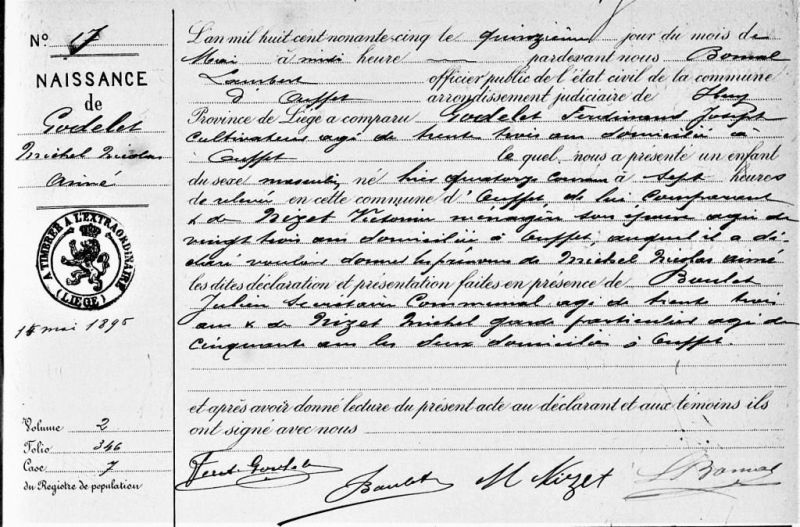 N° 17
NAISSANCE
de
Godelet
Michel Nicolas
Aimé
A TIMBRER A L'EXTRAORDINAIRE
(LIÈGE)
15 mai 1895
Volume 2
Folio 346
Case 7
du Registre de population
L'an mil huit cent nonante-cinq le quinzième jour du mois de
Mai à midi heure pardevant nous Bonmal
Lambert officier public de l'état civil de la commune
d'Ouffet arrondissement judiciaire de Huy
Province de Liège a comparu Godelet Ferdinand Joseph
cultivateur agé de trente trois ans domicilié à
Ouffet lequel nous a présenté un enfant
du sexe masculin, né hier quatorze courant à sept heures
de relevée en cette commune d'Ouffet, de lui comparant
& de Nizet Victorine ménagère son épouse agée de
vingt trois ans domiciliée à Ouffet, auquel il a dé-
claré vouloir donner les prénoms de Michel Nicolas Aimé
les dites déclaration et présentation faites en présence de Boulet
Julien Secrétaire Communal agé de trente trois
ans & de Nizet Michel garde particulier agé de
cinquante ans les deux domiciliés à Ouffet.
et après avoir donné lecture du présent acte au déclarant et aux témoins ils
ont signé avec nous
Ferd Godelet
Boulet
M Nizet
L Bonmal